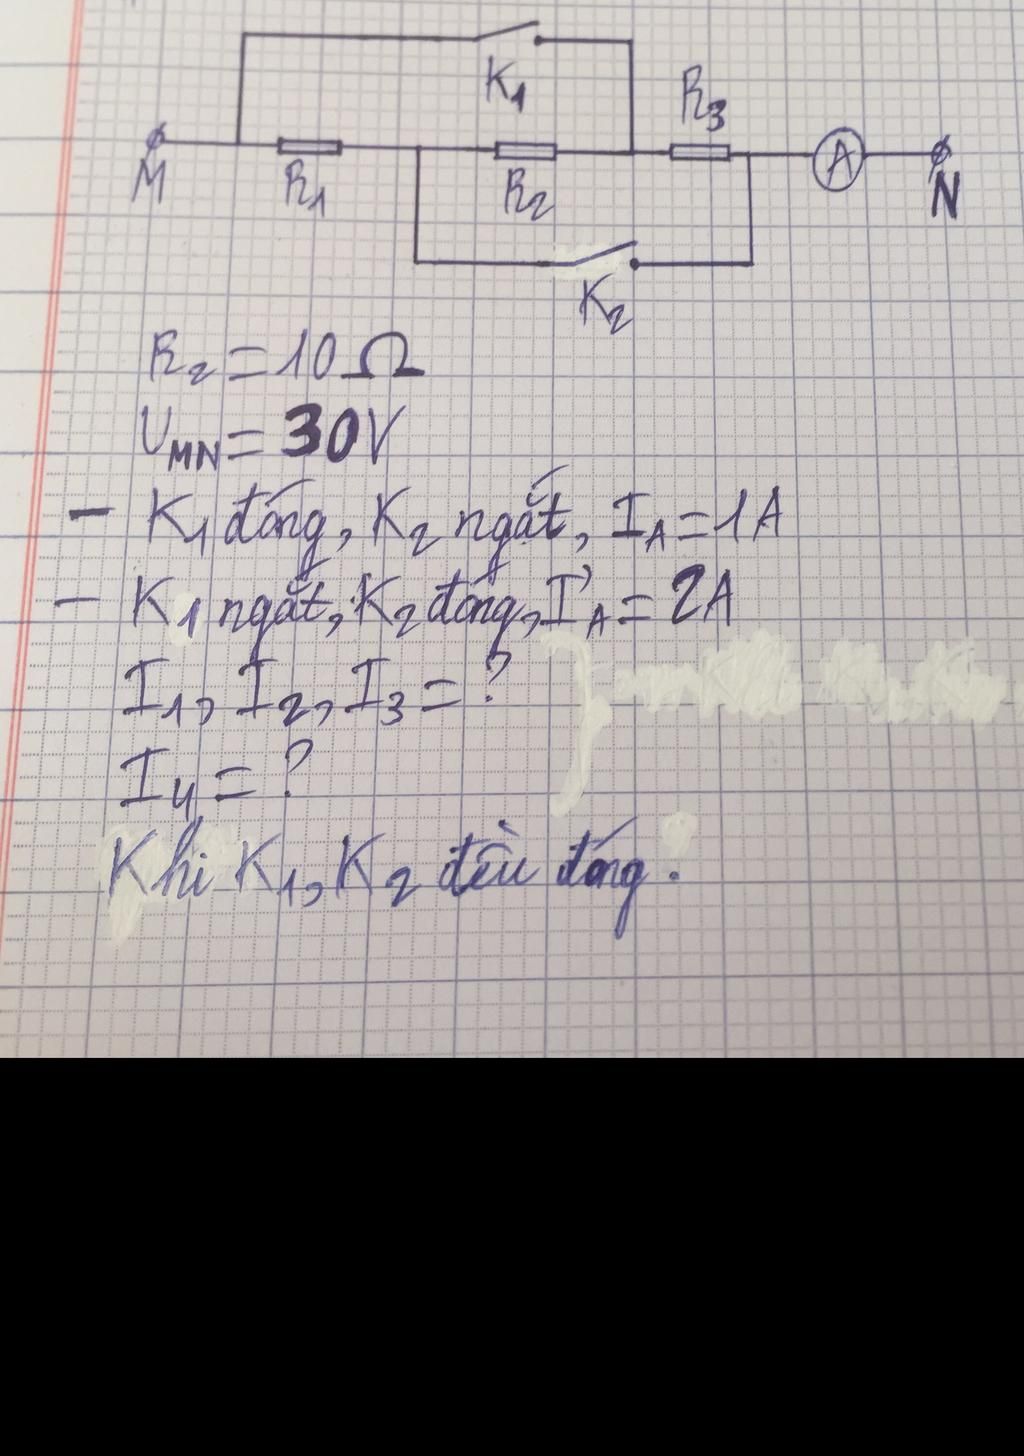 K₁
R₃
M
R₁
R₂
A
N
K₂
R₂ = 10 Ω
U_MN = 30V
- K₁ đóng, K₂ ngắt, I_A = 1A
- K₁ ngắt, K₂ đóng, I'_A = 2A
I₁, I₂, I₃ = ?
I₄ = ?
Khi K₁, K₂ đều đóng.